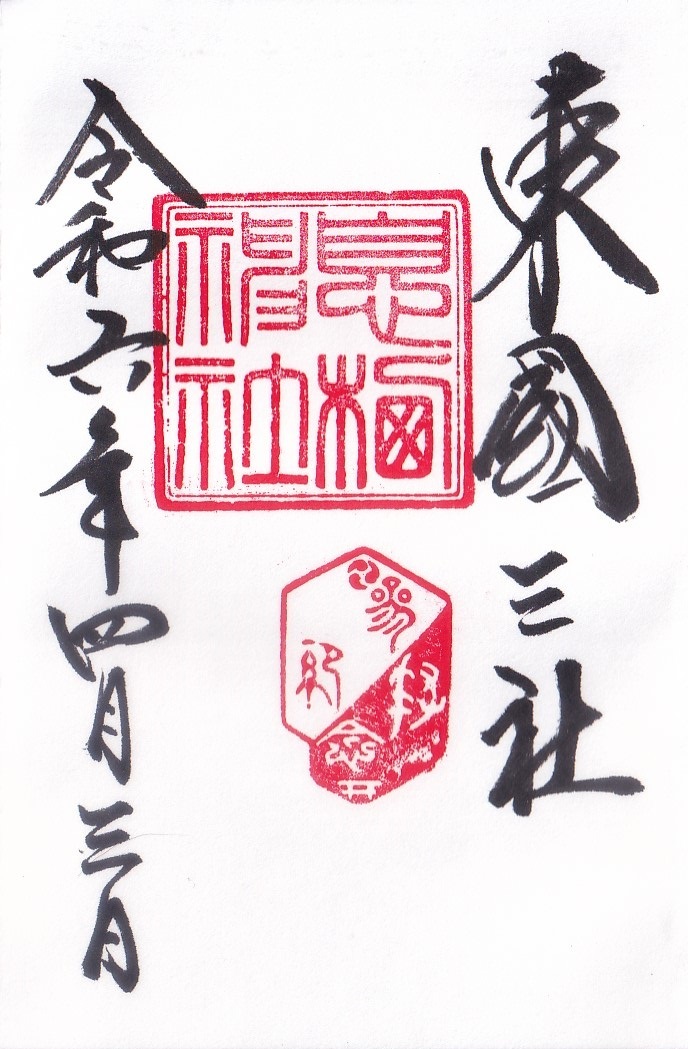 東國三社
息栖
神社
令和六年四月三日